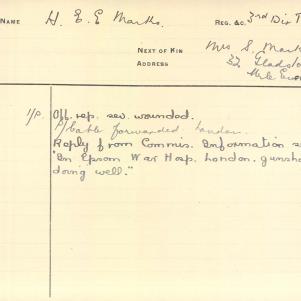 NAME H. E. E Marks. REG. &C. 3rd Div T
NEXT OF KIN Mrs S. Mark
ADDRESS 32 Gladsto
Mile End
1/P. Off. rep. sev. wounded.
P/Cable forwarded London.
Reply from Commis. Information s
"In Epsom War Hosp. London. gunsho
doing well."